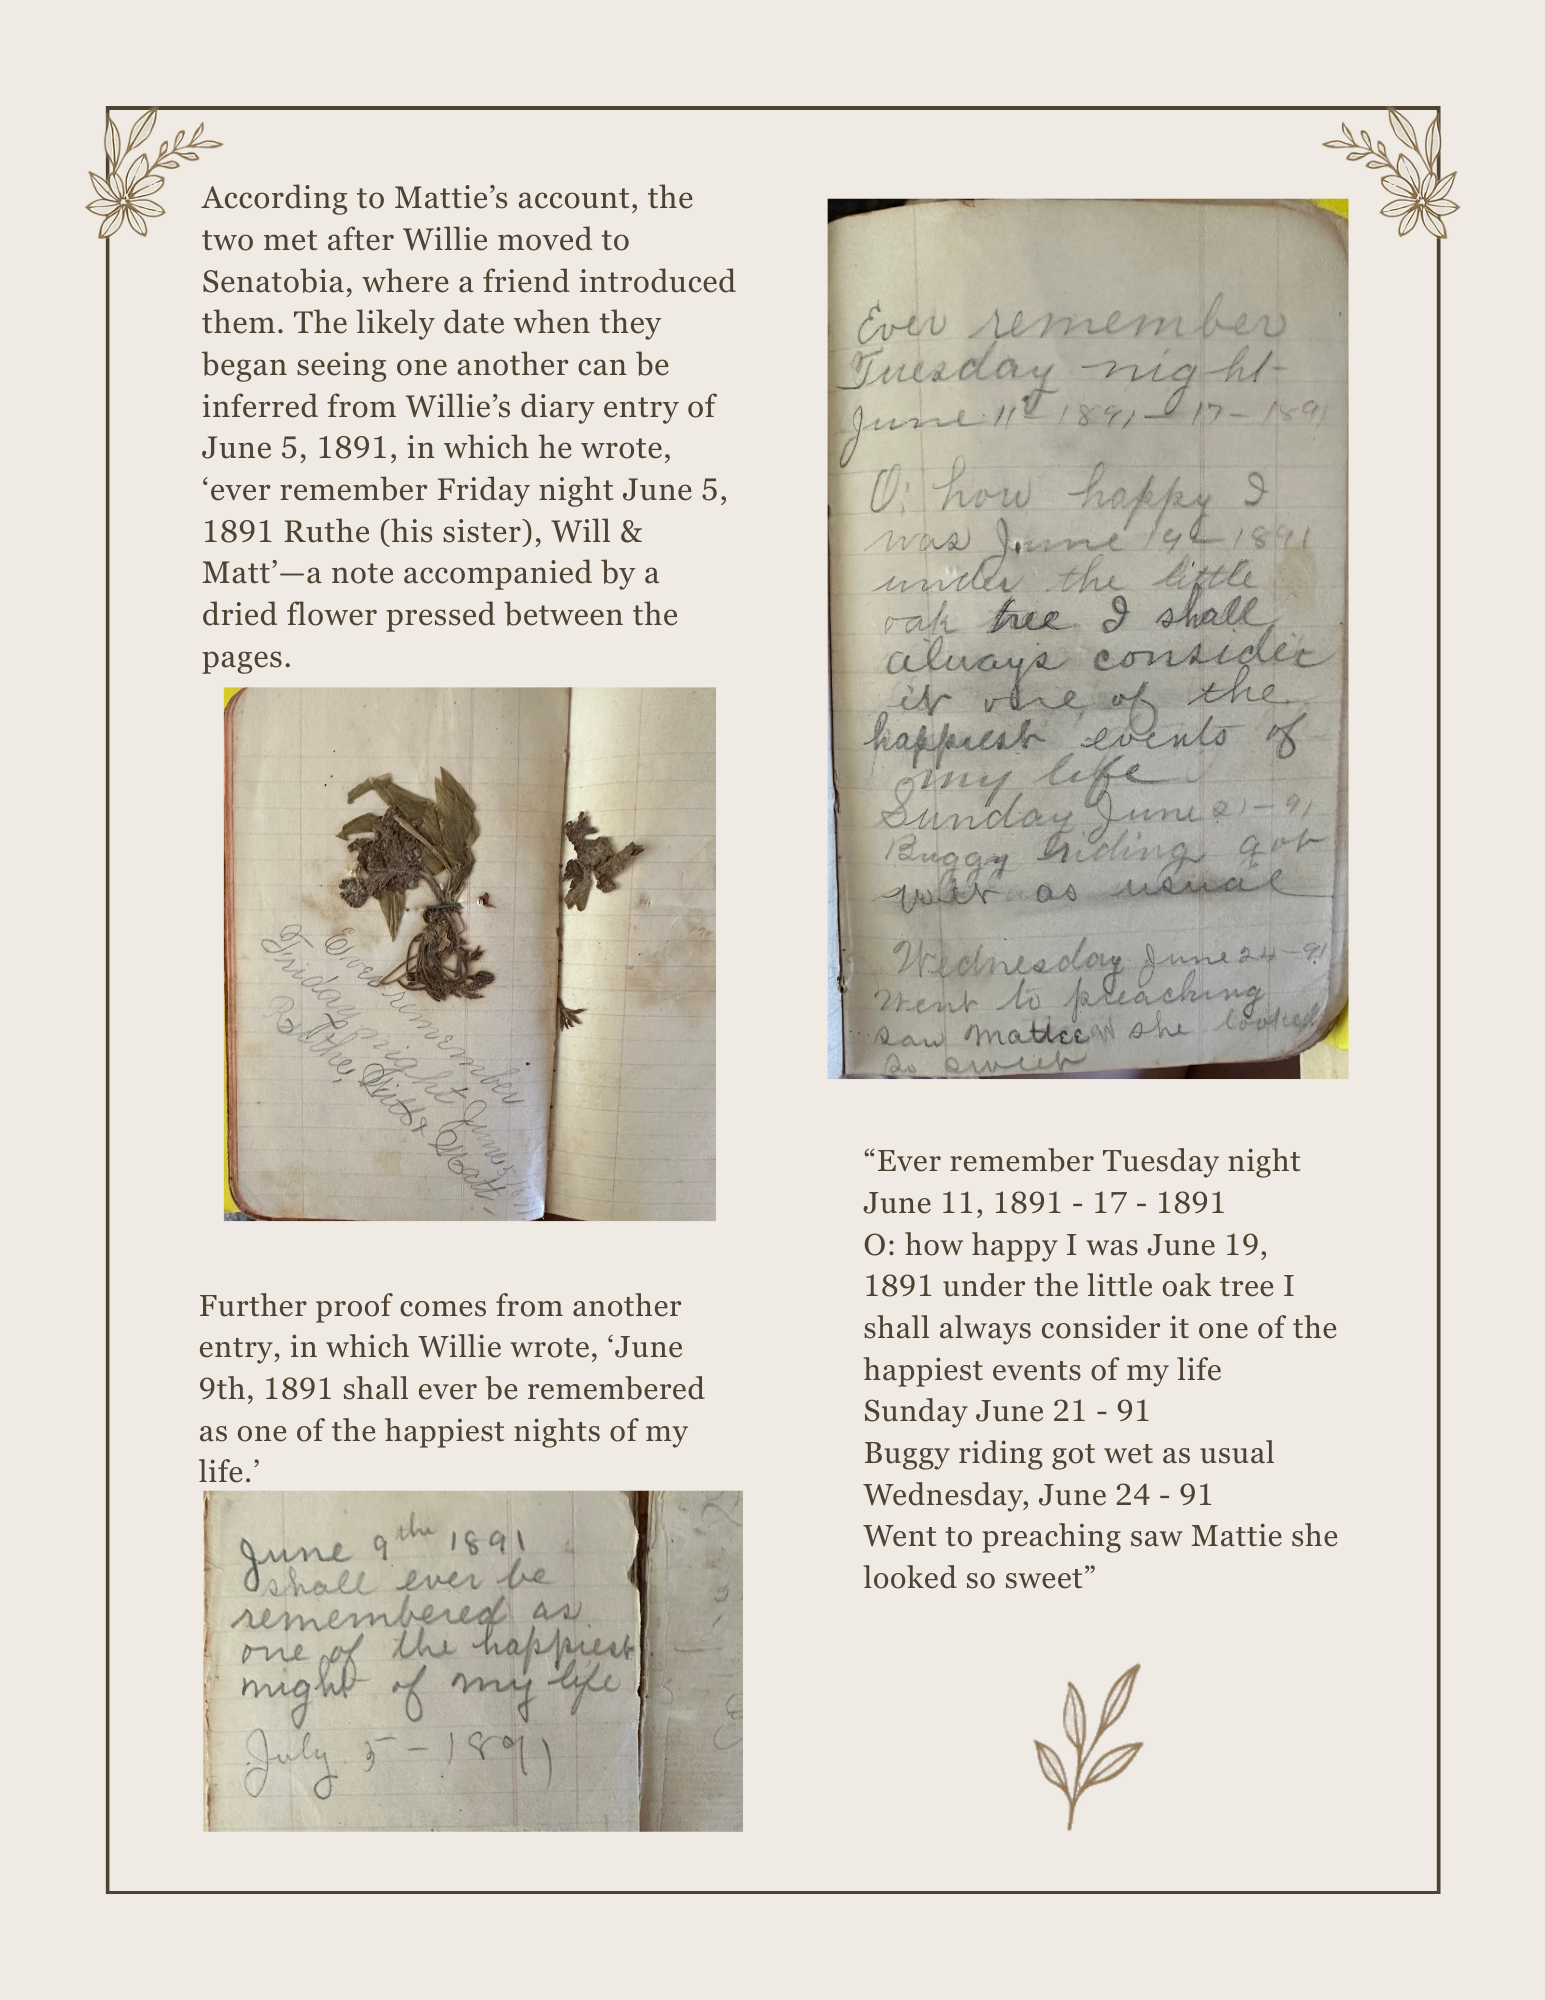 According to Mattie’s account, the
two met after Willie moved to
Senatobia, where a friend introduced
them. The likely date when they
began seeing one another can be
inferred from Willie’s diary entry of
June 5, 1891, in which he wrote,
‘ever remember Friday night June 5,
1891 Ruthe (his sister), Will &
Matt’—a note accompanied by a
dried flower pressed between the
pages.
Ever remember
Friday night June 5, 1891
Ruthe, Will & Matt.
Further proof comes from another
entry, in which Willie wrote, ‘June
9th, 1891 shall ever be remembered
as one of the happiest nights of my
life.’
June 9the 1891
shall ever be
remembered as
one of the happiest
night of my life
July 5 - 1891
Ever remember
Tuesday night-
June 11 - 1891 - 17 - 1891
O; how happy I
was June 19 - 1891
under the little
oak tree I shall
always consider
it one of the
happiest events of
my life
Sunday June 21 - 91
Buggy riding got
wet as usual
Wednesday June 24 - 91
Went to preaching
saw Mattee she looked
so sweet
“Ever remember Tuesday night
June 11, 1891 - 17 - 1891
O: how happy I was June 19,
1891 under the little oak tree I
shall always consider it one of the
happiest events of my life
Sunday June 21 - 91
Buggy riding got wet as usual
Wednesday, June 24 - 91
Went to preaching saw Mattie she
looked so sweet”